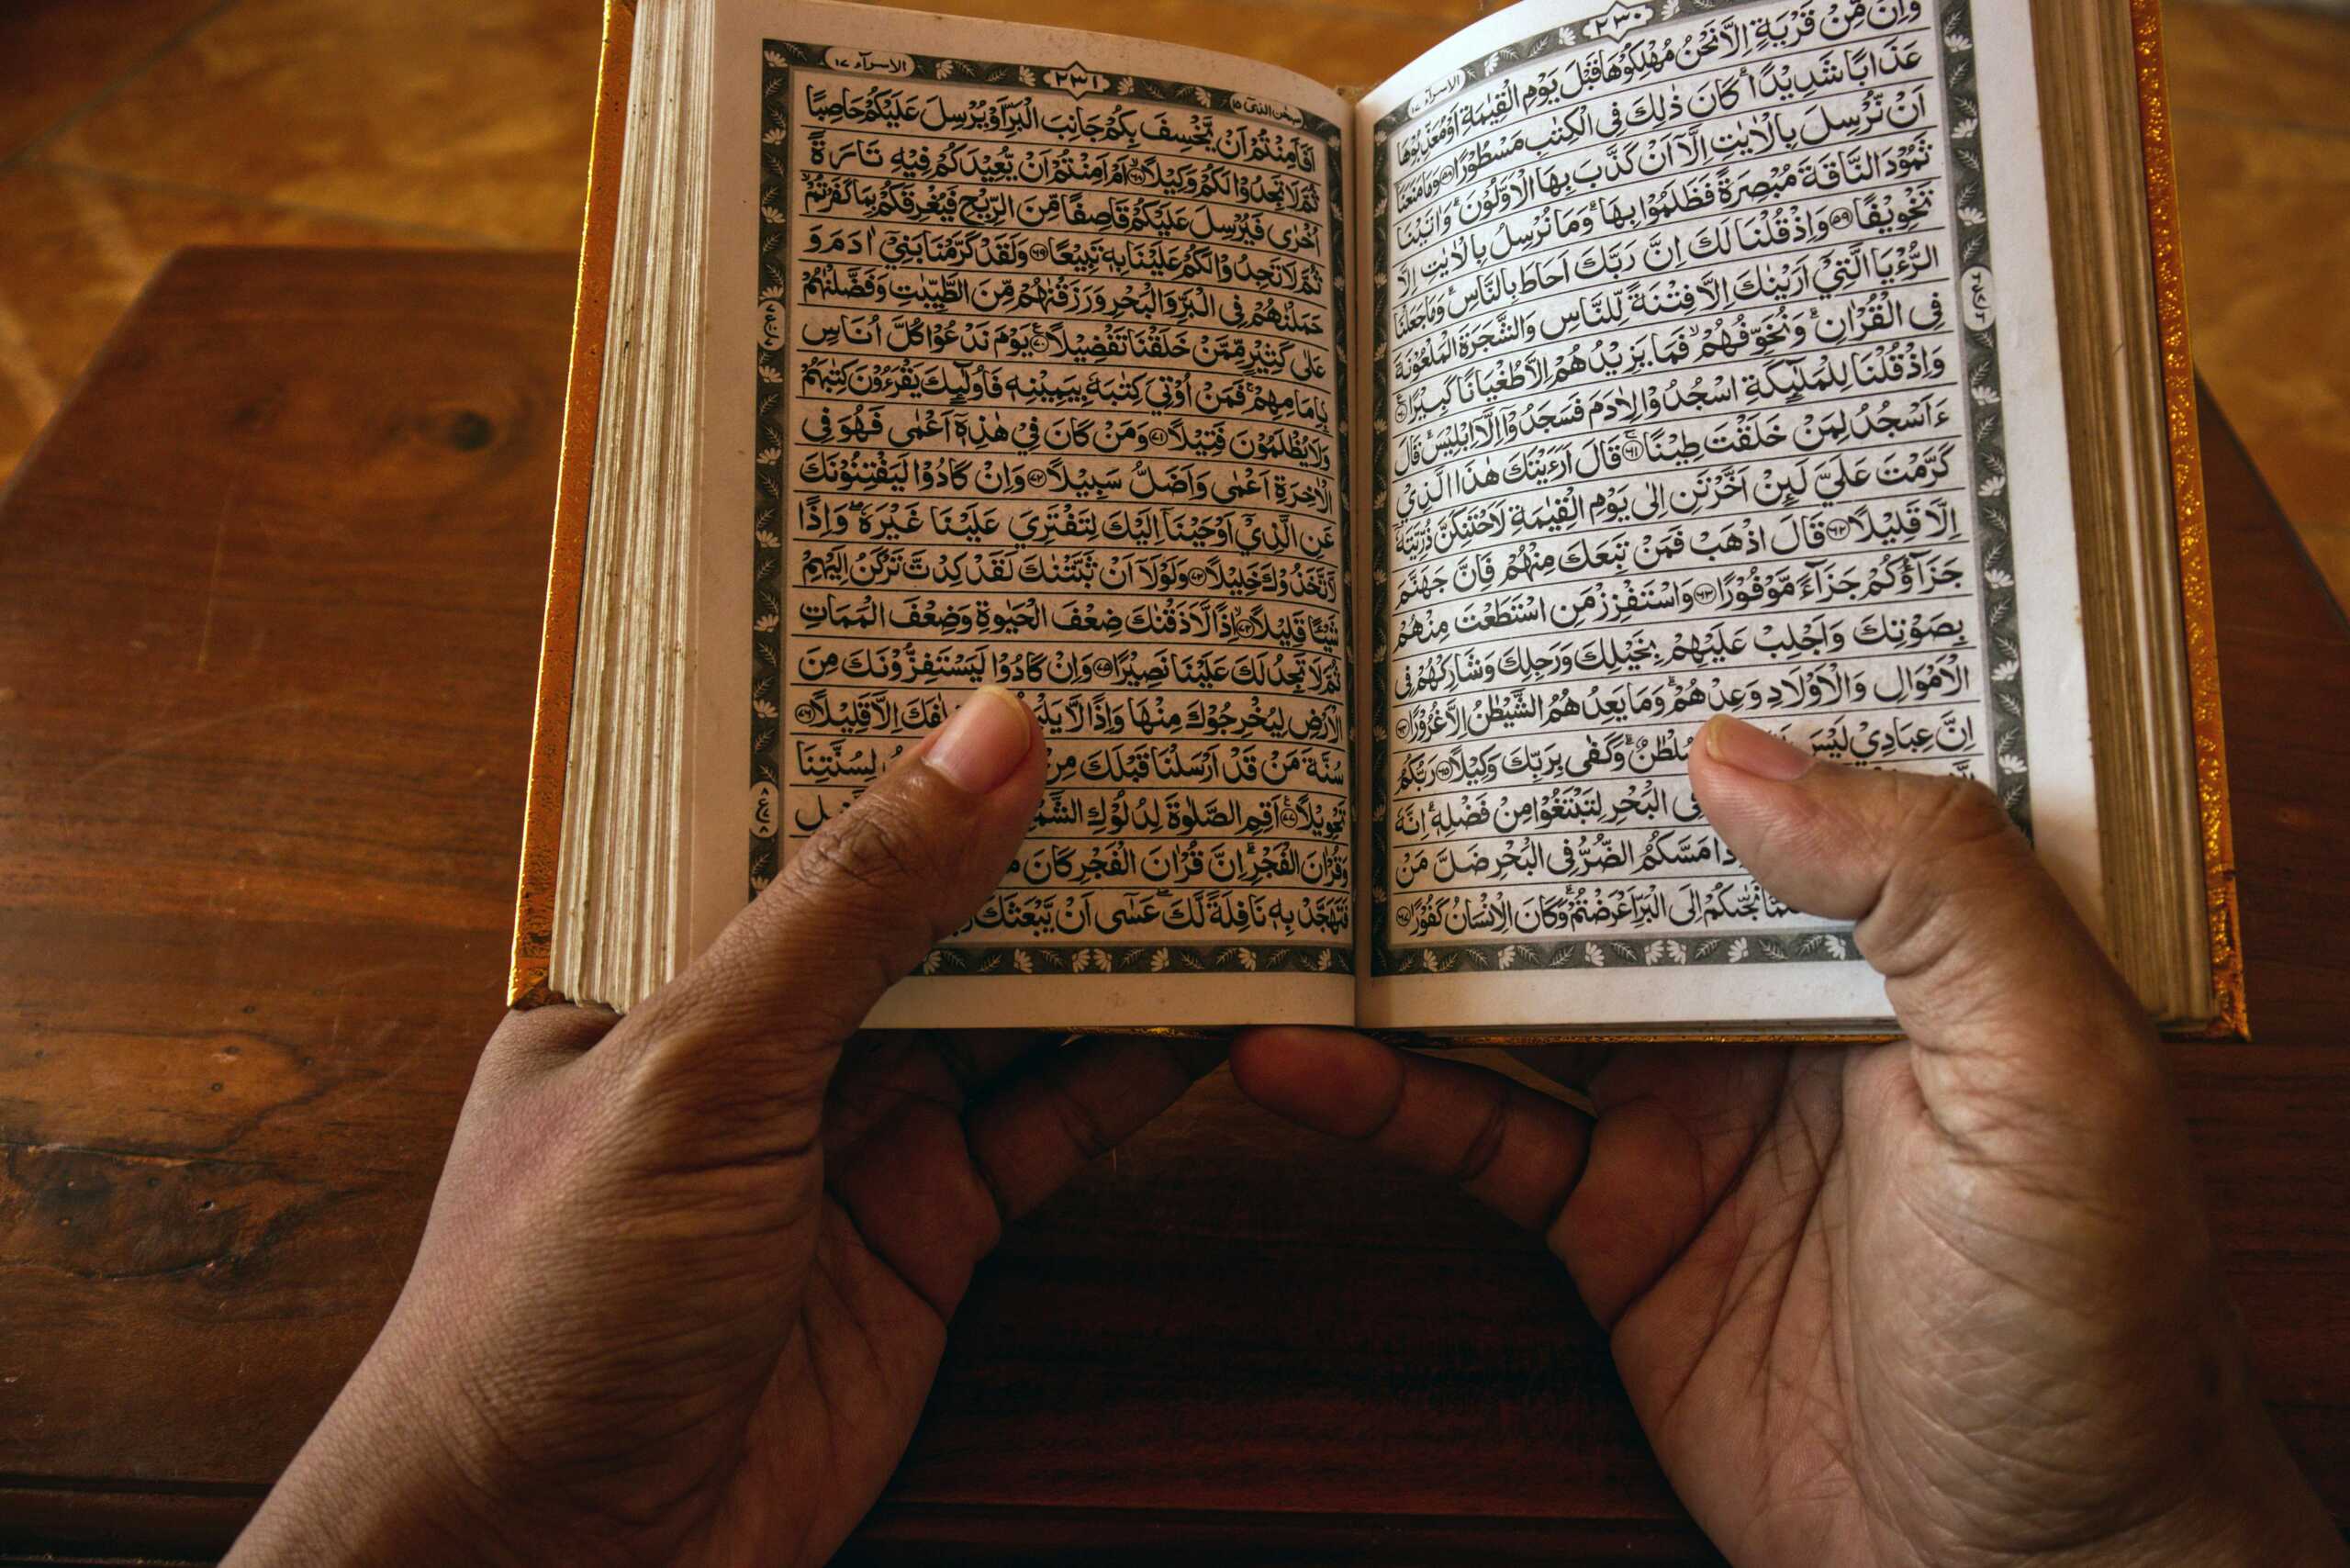 ٢٣٠
الاسرآء ١٧
وَاِنْ مِّنْ قَرْيَةٍ اِلَّا نَحْنُ مُهْلِكُوْهَا قَبْلَ يَوْمِ الْقِيٰمَةِ اَوْ مُعَذِّبُوْهَا
عَذَابًا شَدِيْدًا ۚ كَانَ ذٰلِكَ فِى الْكِتٰبِ مَسْطُوْرًا ٥٨ وَمَا مَنَعَنَآ
اَنْ نُّرْسِلَ بِالْاٰيٰتِ اِلَّآ اَنْ كَذَّبَ بِهَا الْاَوَّلُوْنَ ۚ وَاٰتَيْنَا
ثَمُوْدَ النَّاقَةَ مُبْصِرَةً فَظَلَمُوْا بِهَا ۚ وَمَا نُرْسِلُ بِالْاٰيٰتِ اِلَّا
تَخْوِيْفًا ٥٩ وَاِذْ قُلْنَا لَكَ اِنَّ رَبَّكَ اَحَاطَ بِالنَّاسِ ۚ وَمَا جَعَلْنَا
الرُّءْيَا الَّتِيْٓ اَرَيْنٰكَ اِلَّا فِتْنَةً لِّلنَّاسِ وَالشَّجَرَةَ الْمَلْعُوْنَةَ
فِى الْقُرْاٰنِ ۚ وَنُخَوِّفُهُمْ ۙ فَمَا يَزِيْدُهُمْ اِلَّا طُغْيَانًا كَبِيْرًا ٦٠
وَاِذْ قُلْنَا لِلْمَلٰٓئِكَةِ اسْجُدُوْا لِاٰدَمَ فَسَجَدُوْٓا اِلَّآ اِبْلِيْسَ ۚ قَالَ
ءَاَسْجُدُ لِمَنْ خَلَقْتَ طِيْنًا ٦١ قَالَ اَرَءَيْتَكَ هٰذَا الَّذِيْ
كَرَّمْتَ عَلَيَّ لَئِنْ اَخَّرْتَنِ اِلٰى يَوْمِ الْقِيٰمَةِ لَاَحْتَنِكَنَّ ذُرِّيَّتَهٗٓ
اِلَّا قَلِيْلًا ٦٢ قَالَ اذْهَبْ فَمَنْ تَبِعَكَ مِنْهُمْ فَاِنَّ جَهَنَّمَ
جَزَآؤُكُمْ جَزَآءً مَّوْفُوْرًا ٦٣ وَاسْتَفْزِزْ مَنِ اسْتَطَعْتَ مِنْهُمْ
بِصَوْتِكَ وَاَجْلِبْ عَلَيْهِمْ بِخَيْلِكَ وَرَجِلِكَ وَشَارِكْهُمْ فِى
الْاَمْوَالِ وَالْاَوْلَادِ وَعِدْهُمْ ۚ وَمَا يَعِدُهُمُ الشَّيْطٰنُ اِلَّا غُرُوْرًا ٦٤
اِنَّ عِبَادِيْ لَيْسَ سُلْطٰنٌ ۚ وَكَفٰى بِرَبِّكَ وَكِيْلًا ٦٥ رَبُّكُمُ
فِى الْبَحْرِ لِتَبْتَغُوْا مِنْ فَضْلِهٖ ۚ اِنَّهٗ
مَسَّكُمُ الضُّرُّ فِى الْبَحْرِ ضَلَّ مَنْ
نَجّٰىكُمْ اِلَى الْبَرِّ اَعْرَضْتُمْ ۚ وَكَانَ الْاِنْسَانُ كَفُوْرًا ٦٧
سبحٰن الذيٓ ١٥
٢٣١
الاسرآء ١٧
اَفَاَمِنْتُمْ اَنْ يَّخْسِفَ بِكُمْ جَانِبَ الْبَرِّ اَوْ يُرْسِلَ عَلَيْكُمْ حَاصِبًا
ثُمَّ لَا تَجِدُوْا لَكُمْ وَكِيْلًا ۙ ٦٨ اَمْ اَمِنْتُمْ اَنْ يُّعِيْدَكُمْ فِيْهِ تَارَةً
اُخْرٰى فَيُرْسِلَ عَلَيْكُمْ قَاصِفًا مِّنَ الرِّيْحِ فَيُغْرِقَكُمْ بِمَا كَفَرْتُمْ ۙ
ثُمَّ لَا تَجِدُوْا لَكُمْ عَلَيْنَا بِهٖ تَبِيْعًا ٦٩ وَلَقَدْ كَرَّمْنَا بَنِيْٓ اٰدَمَ وَ
حَمَلْنٰهُمْ فِى الْبَرِّ وَالْبَحْرِ وَرَزَقْنٰهُمْ مِّنَ الطَّيِّبٰتِ وَفَضَّلْنٰهُمْ
عَلٰى كَثِيْرٍ مِّمَّنْ خَلَقْنَا تَفْضِيْلًا ٧٠ يَوْمَ نَدْعُوْا كُلَّ اُنَاسٍۢ
بِاِمَامِهِمْ ۚ فَمَنْ اُوْتِيَ كِتٰبَهٗ بِيَمِيْنِهٖ فَاُولٰٓئِكَ يَقْرَءُوْنَ كِتٰبَهُمْ
وَلَا يُظْلَمُوْنَ فَتِيْلًا ٧١ وَمَنْ كَانَ فِيْ هٰذِهٖٓ اَعْمٰى فَهُوَ فِى
الْاٰخِرَةِ اَعْمٰى وَاَضَلُّ سَبِيْلًا ٧٢ وَاِنْ كَادُوْا لَيَفْتِنُوْنَكَ
عَنِ الَّذِيْٓ اَوْحَيْنَآ اِلَيْكَ لِتَفْتَرِيَ عَلَيْنَا غَيْرَهٗ ۖ وَاِذًا
لَّاتَّخَذُوْكَ خَلِيْلًا ٧٣ وَلَوْلَآ اَنْ ثَبَّتْنٰكَ لَقَدْ كِدْتَّ تَرْكَنُ اِلَيْهِمْ
شَيْئًا قَلِيْلًا ۙ ٧٤ اِذًا لَّاَذَقْنٰكَ ضِعْفَ الْحَيٰوةِ وَضِعْفَ الْمَمَاتِ
ثُمَّ لَا تَجِدُ لَكَ عَلَيْنَا نَصِيْرًا ٧٥ وَاِنْ كَادُوْا لَيَسْتَفِزُّوْنَكَ مِنَ
الْاَرْضِ لِيُخْرِجُوْكَ مِنْهَا وَاِذًا لَّا اِلَّا قَلِيْلًا ٧٦
سُنَّةَ مَنْ قَدْ اَرْسَلْنَا قَبْلَكَ مِنْ لِسُنَّتِنَا
تَحْوِيْلًا ٧٧ اَقِمِ الصَّلٰوةَ لِدُلُوْكِ
وَقُرْاٰنَ الْفَجْرِ ۚ اِنَّ قُرْاٰنَ الْفَجْرِ كَانَ
فَتَهَجَّدْ بِهٖ نَافِلَةً لَّكَ ۖ عَسٰٓى اَنْ يَّبْعَثَكَ